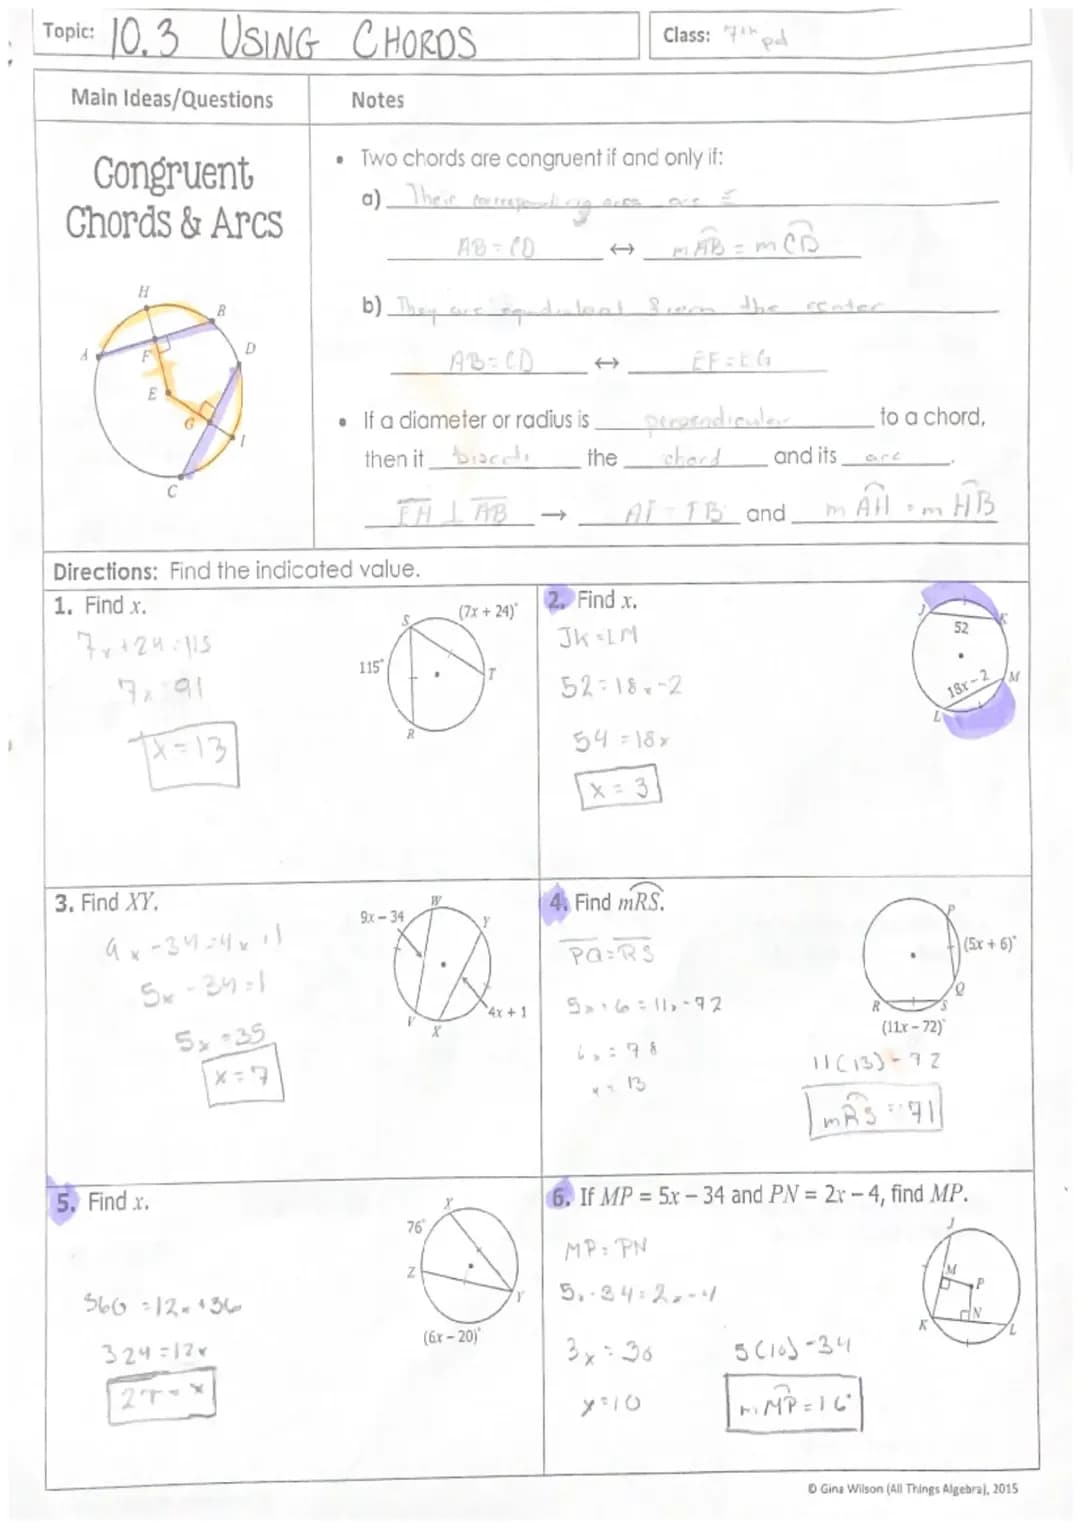 Topic: 10.3 USING CHORDS
Class: 7th pd
Main Ideas/Questions
Notes
Congruent
Chords & Arcs
• Two chords are congruent if and only if:
a) Their corresponding arcs are ≅
AB = CD ↔ mAB = mCD
b) They are equidistant from the center
AB = CD ↔ EF = EG
• If a diameter or radius is perpendicular to a chord,
then it bisects the chord and its arc.
EH ⊥ AB → AF = FB and mAH = mHB
H
B
A
F
D
E
G
I
C
Directions: Find the indicated value.
1. Find x.
7x + 24 = 115
7x = 91
x = 13
S
(7x + 24)°
115°
T
R
2. Find x.
JK = LM
52 = 18x - 2
54 = 18x
x = 3
J
K
52
18x - 2
M
L
3. Find XY.
9x - 34 = 4x + 1
5x - 34 = 1
5x = 35
x = 7
9x - 34
W
Y
V
X
4x + 1
4. Find mRS.
PQ = RS
5x + 6 = 11x - 72
6x = 78
x = 13
P
(5x + 6)°
Q
R
S
(11x - 72)°
11(13) - 72
mRS = 71
5. Find x.
360 = 12x + 36
324 = 12x
27 = x
X
76°
Z
Y
(6x - 20)°
6. If MP = 5x - 34 and PN = 2x - 4, find MP.
MP = PN
5x - 34 = 2x - 4
3x = 30
x = 10
5(10) - 34
mMP = 16°
J
M
P
N
K
L
© Gina Wilson (All Things Algebra), 2015